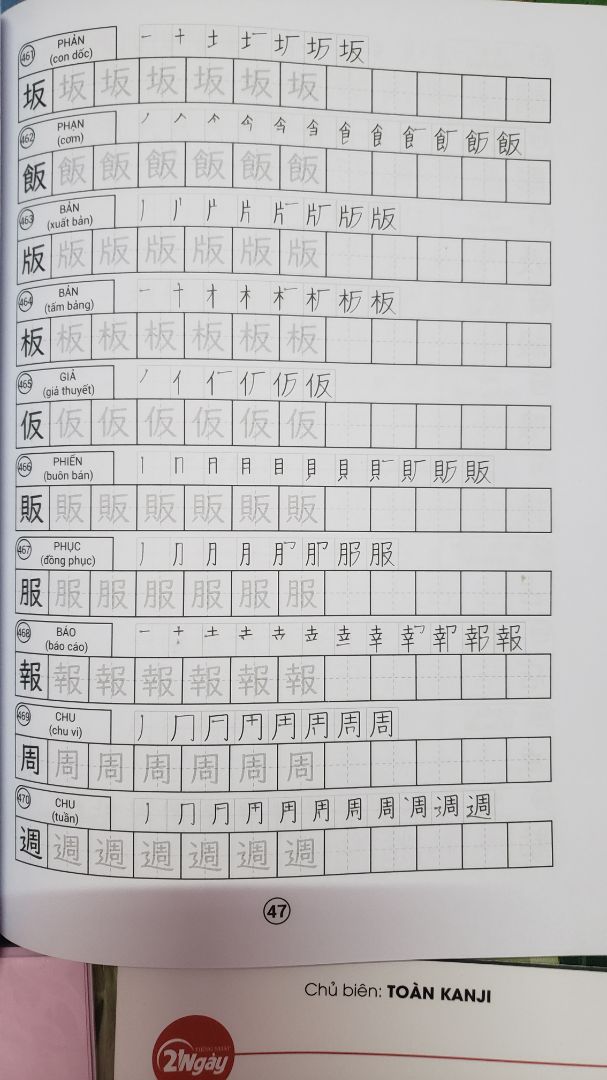 461 PHẢN
(con dốc)
一 十 土 圹 坂 坂
坂 坂 坂 坂 坂 坂 坂
462 PHẠN
(cơm)
飯
飯 飯 飯 飯 飯 飯 飯
463 BẢN
(xuất bản)
版
版 版 版 版 版 版 版
464 BẢN
(tấm bảng)
一 十 オ 木 板
板 板 板 板 板 板 板
465 GIẢ
(giả thuyết)
ノ 亻 仮
仮 仮 仮 仮 仮 仮 仮
466 PHIẾN
(buôn bán)
丨 冂 月 目 貝 販
販 販 販 販 販 販 販
467 PHỤC
(đồng phục)
丿 月 服
服 服 服 服 服 服 服
468 BÁO
(báo cáo)
一 十 土 幸 報
報 報 報 報 報 報 報
469 CHU
(chu vi)
丿 冂 周
周 周 周 周 周 周 周
470 CHU
(tuần)
丿 冂 周 週
週 週 週 週 週 週 週
47
Chủ biên: TOÀN KANJI
TIẾNG NHẬT
21Ngày